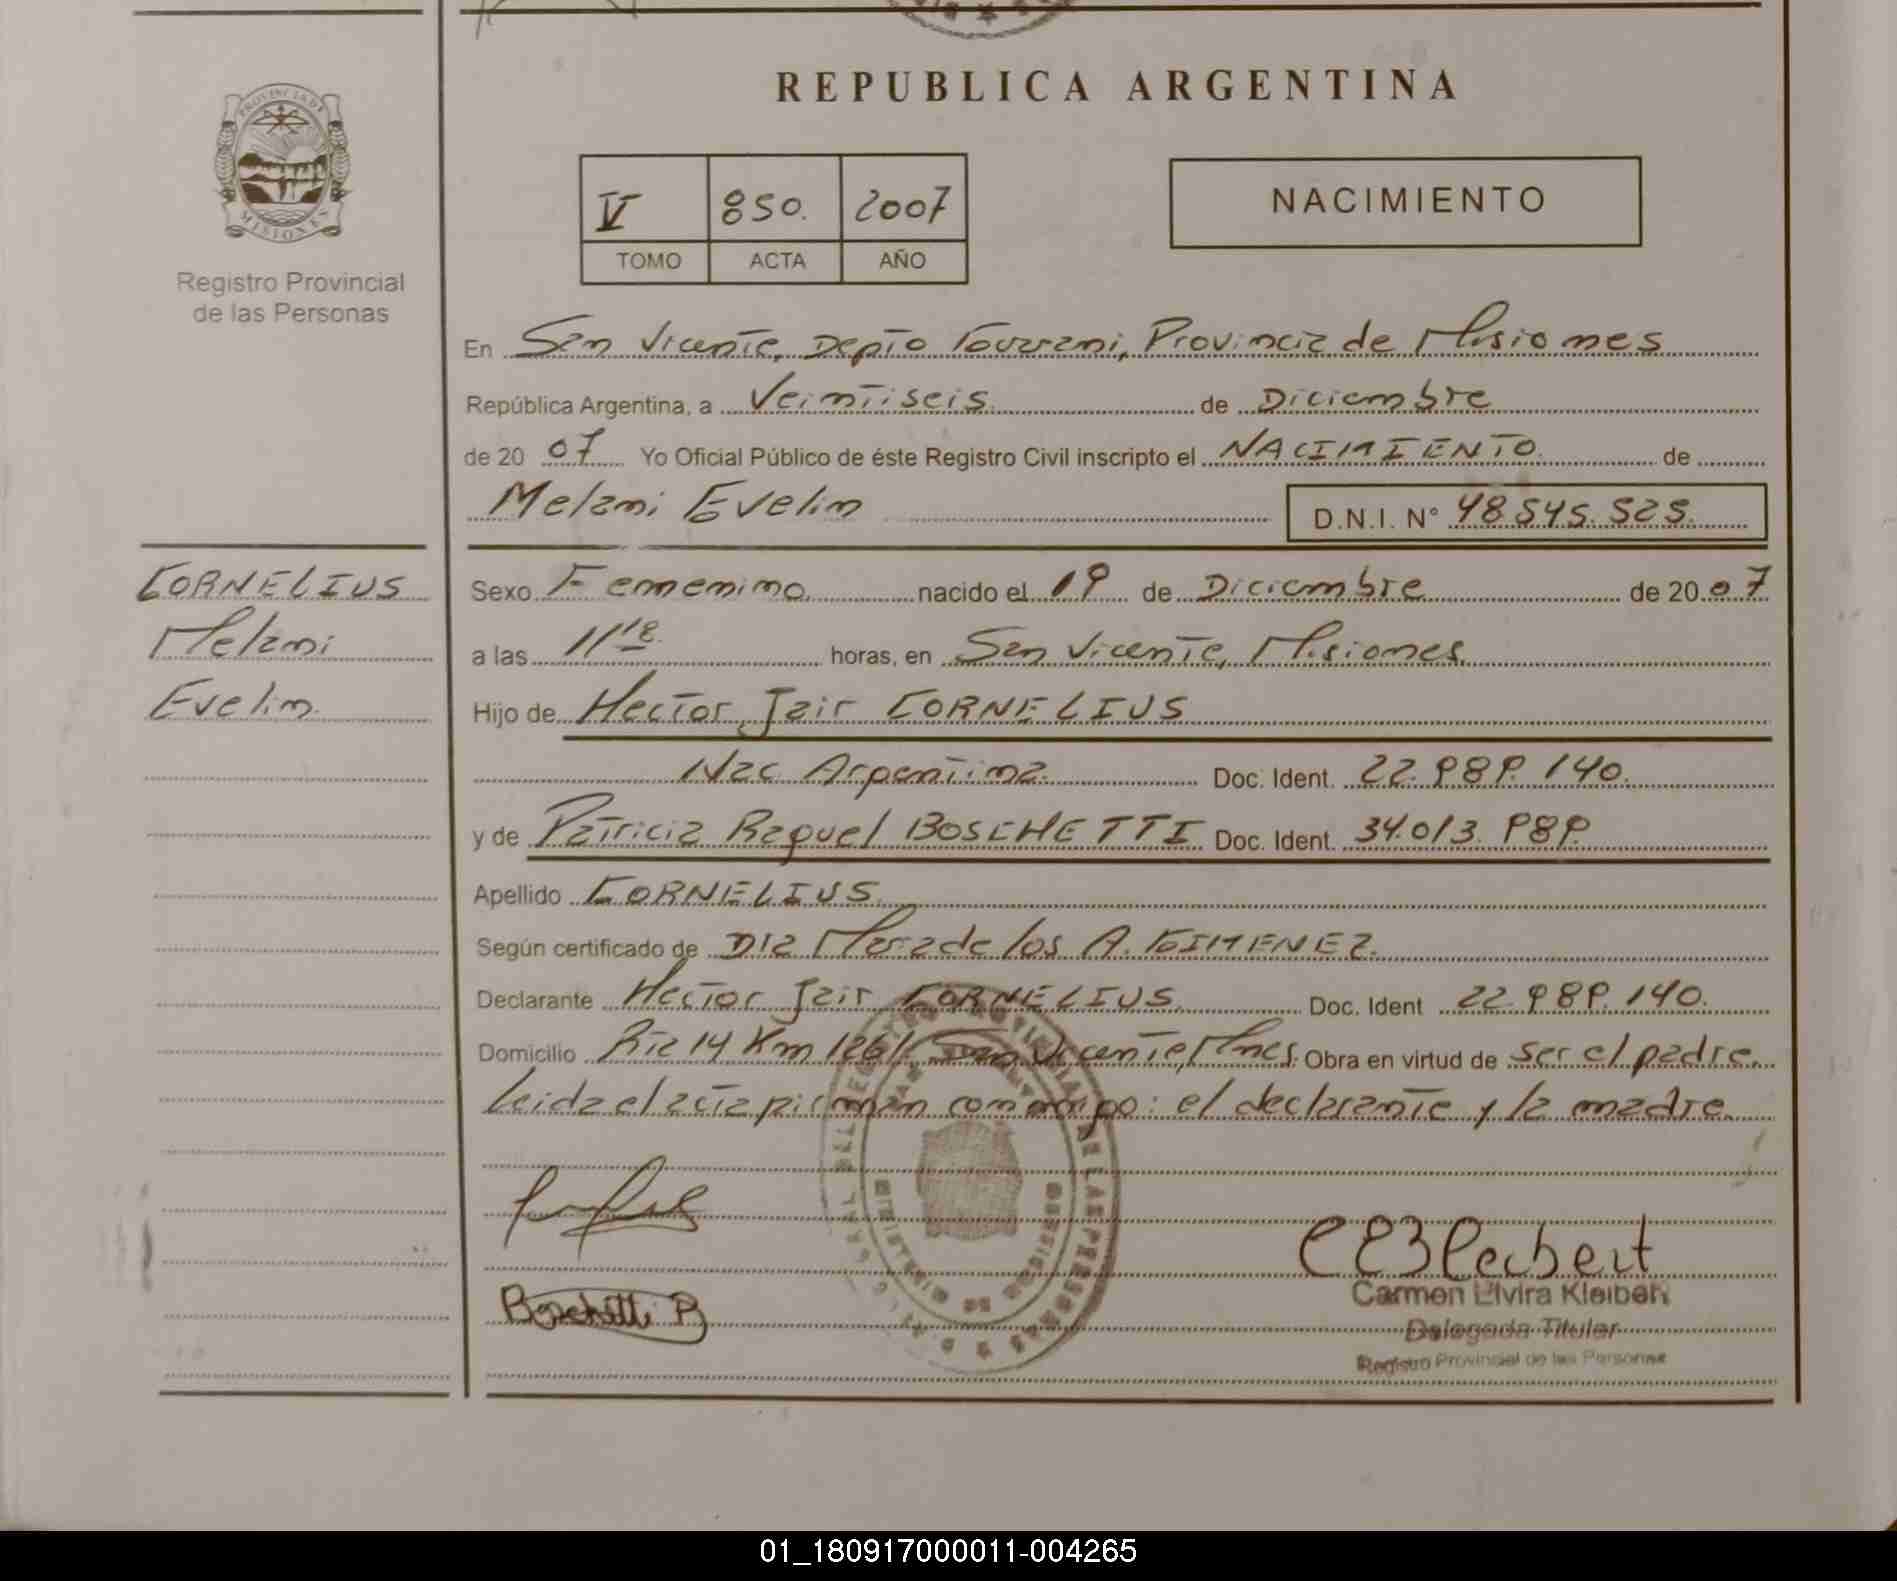 REPUBLICA ARGENTINA
PROVINCIA DE
MISIONES
Registro Provincial
de las Personas
V 850. 2007
TOMO ACTA AÑO
NACIMIENTO
En San Vicente, Depto Guarani, Provincia de Misiones
República Argentina, a Veintiseis de Diciembre
de 20 07 Yo Oficial Público de éste Registro Civil inscripto el NACIMIENTO de
Melani Evelin D.N.I. N° 48.545.525.
CORNELIUS
Melani
Evelin
Sexo Femenino nacido el 19 de Diciembre de 20 07
a las 11 18 horas, en San Vicente, Misiones
Hijo de Hector Jair CORNELIUS
Nac Argentina. Doc. Ident. 22.989.140.
y de Patricia Raquel BOSCHETTI Doc. Ident. 34.013.989.
Apellido CORNELIUS
Según certificado de Dra Maria de los A. GIMENEZ.
Declarante Hector Jair CORNELIUS Doc. Ident 22.989.140.
Domicilio Rta 14 Km 1261. San Vicente, Mnes. Obra en virtud de ser el padre.
Leida el acta firman conmigo: el declarante y la madre.
Boschetti P
Carmen Elvira Kleibert
Delegada Titular
Registro Provincial de las Personas
01_180917000011-004265